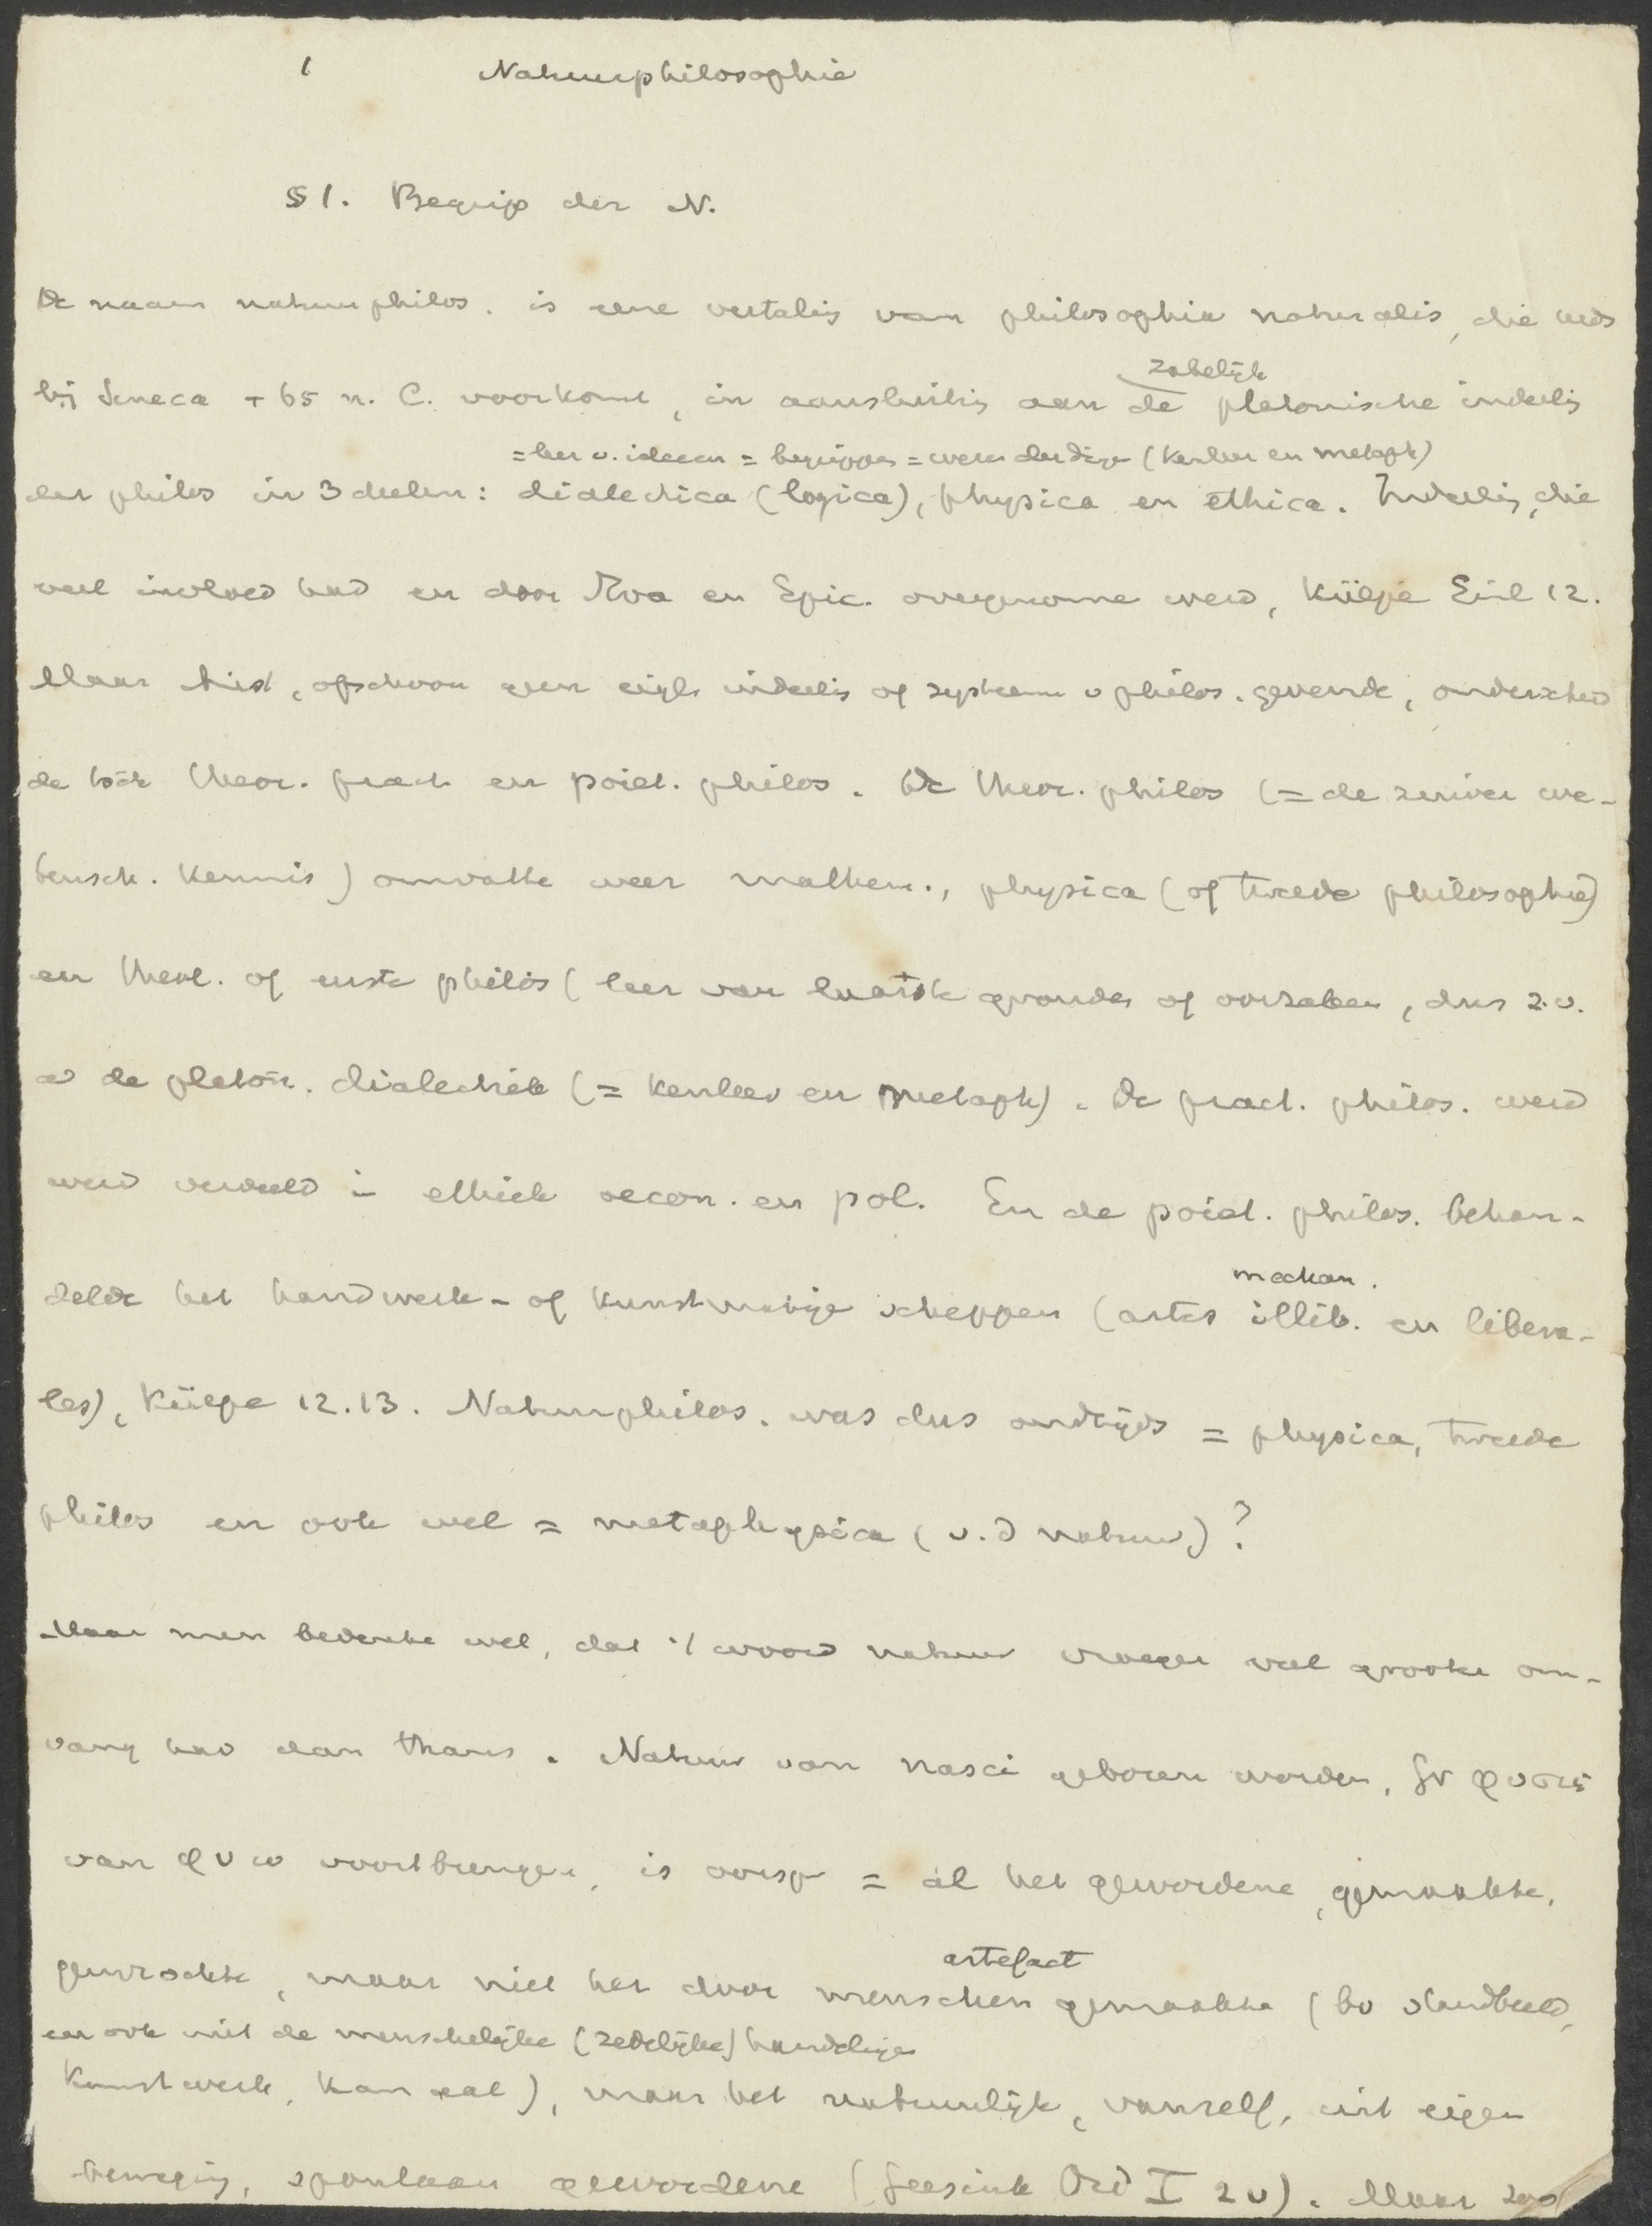 1 Natuurphilosophie
§ 1. Begrip der N.
De naam natuurphilos. is eene vertalig van philosophia naturalis, die reeds
zakelijk
bij Seneca + 65 n. C. voorkomt, in aansluitig aan de platonische indeelig
= leer v. ideeen = begrippen = weze der dige (kenleer en metaph)
der philos in 3 deelen: dialectica (logica), physica en ethica. Indeelig, die
veel invloed had en door Stoa en Epic. overgenome werd, Külpe Einl 12.
Maar Arist, ofschoon geen eigl. indeelig of systeem v philos. gevende, onderscheid
de toch theor. pract. en poiet. philos. De theor. philos (= de zuiver we-
tensch. kennis) omvatte weer mathem., physica (of tweede philosophie)
en theol. of eerste philos (leer van laatste gronden of oorzaken, dus z.v.
a de platon. dialectiek (= kenleer en metaph). De pract. philos. werd
werd verdeeld in ethiek oecon. en pol. En de poiet. philos. behan-
mechan.
delde het handwerk- of kunstmatige scheppen (artes illib. en libera-
les), Külpe 12.13. Natuurphilos. was dus oudtijds = physica, tweede
philos en ook wel = metaphysica (v. d natuur)?
Maar men bedenke wel, dat 't woord natuur vroeger veel grooter om-
vang had dan thans. Natuur van nasci geboren worden, Gr φυσις
van φυω voortbrengen, is oorspr = al het gewordene, gemaakte,
artefact
gewrochte, maar niet het door menschen gemaakte (bv standbeeld,
en ook niet de menschelijke (zedelijke) handelige
kunstwerk, kanaal), maar het natuurlijk, vanzelf, uit eigen
bewegig, spontaan gewordene (Geesink Ord I 2v). Maar zoo